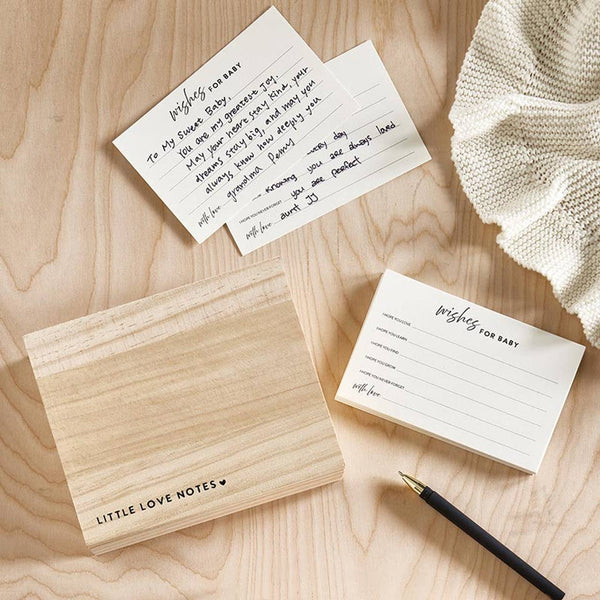 wishes FOR BABY
To My Sweet Baby,
You are my greatest Joy.
May your heart stay kind, your
dreams stay big, and may you
always know how deeply you
with love grandma Penny
very day
knowing you are always loved
I HOPE YOU NEVER FORGET you are perfect
with love aunt JJ
wishes FOR BABY
I HOPE YOU LOVE
I HOPE YOU LEARN
I HOPE YOU FIND
I HOPE YOU GROW
I HOPE YOU NEVER FORGET
with love
LITTLE LOVE NOTES